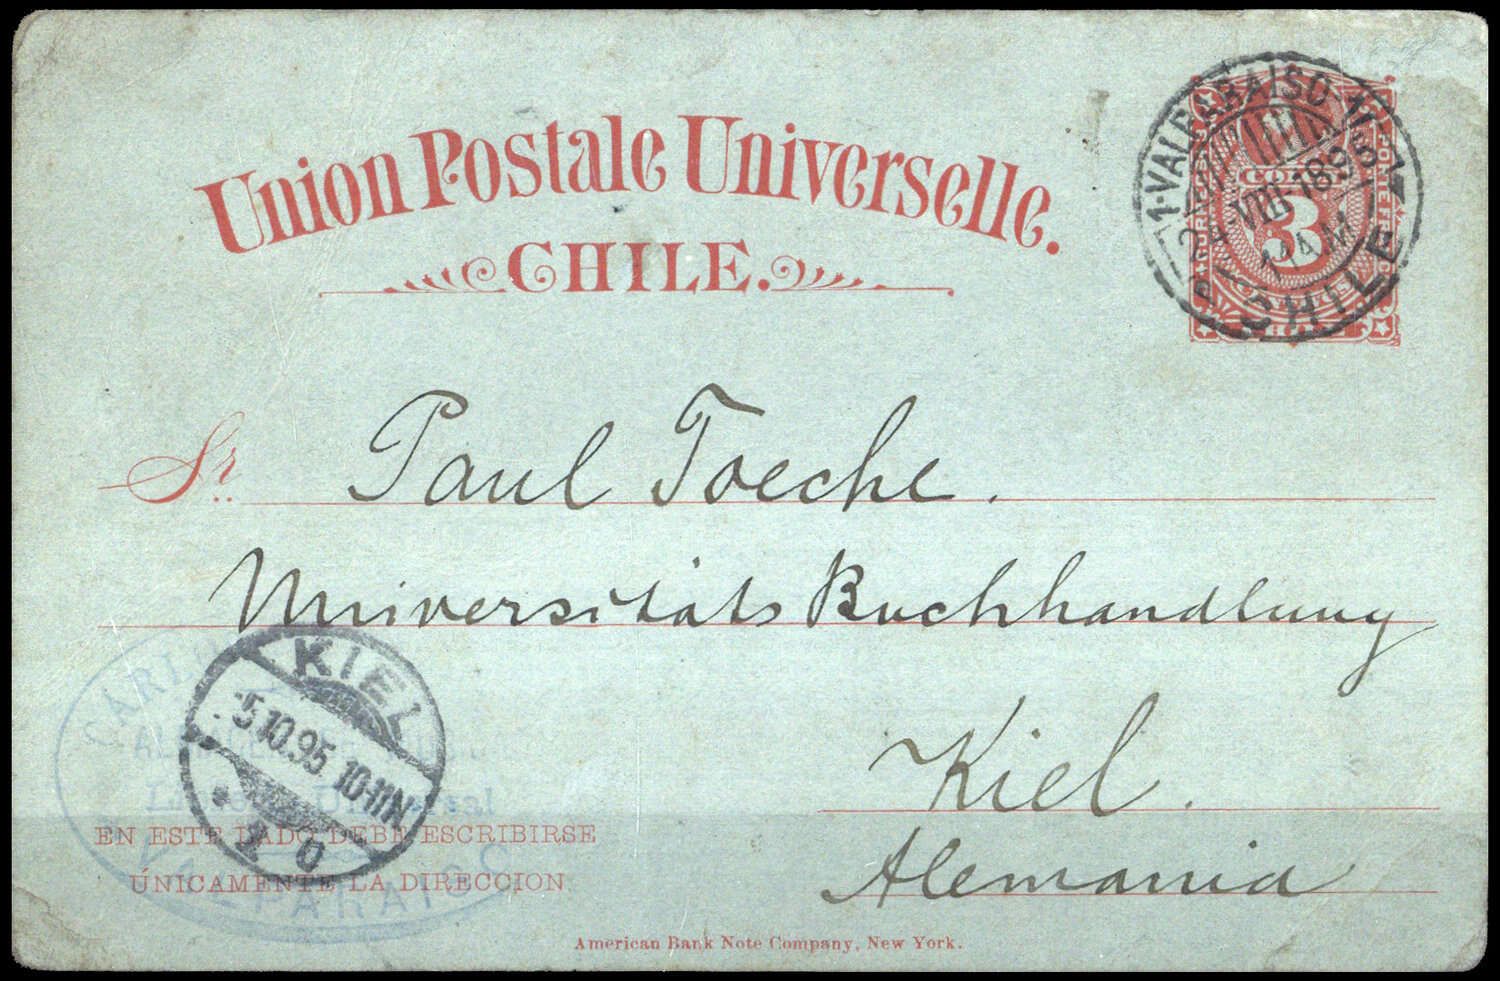 Union Postale Universelle.
CHILE.
VALPARAISO
VIII 1895
CHILE
3
Sr. Paul Toeche.
Universitäts Buchhandlung
Kiel.
Alemania
KIEL
5.10.95 10-11N
VALPARAISO
EN ESTE LADO DEBE ESCRIBIRSE
ÚNICAMENTE LA DIRECCION
American Bank Note Company, New York.